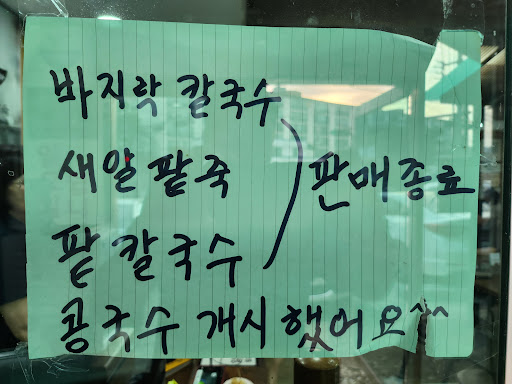 바지락 칼국수
새알 팥죽
팥 칼국수
판매종료
콩국수 개시했어요^^